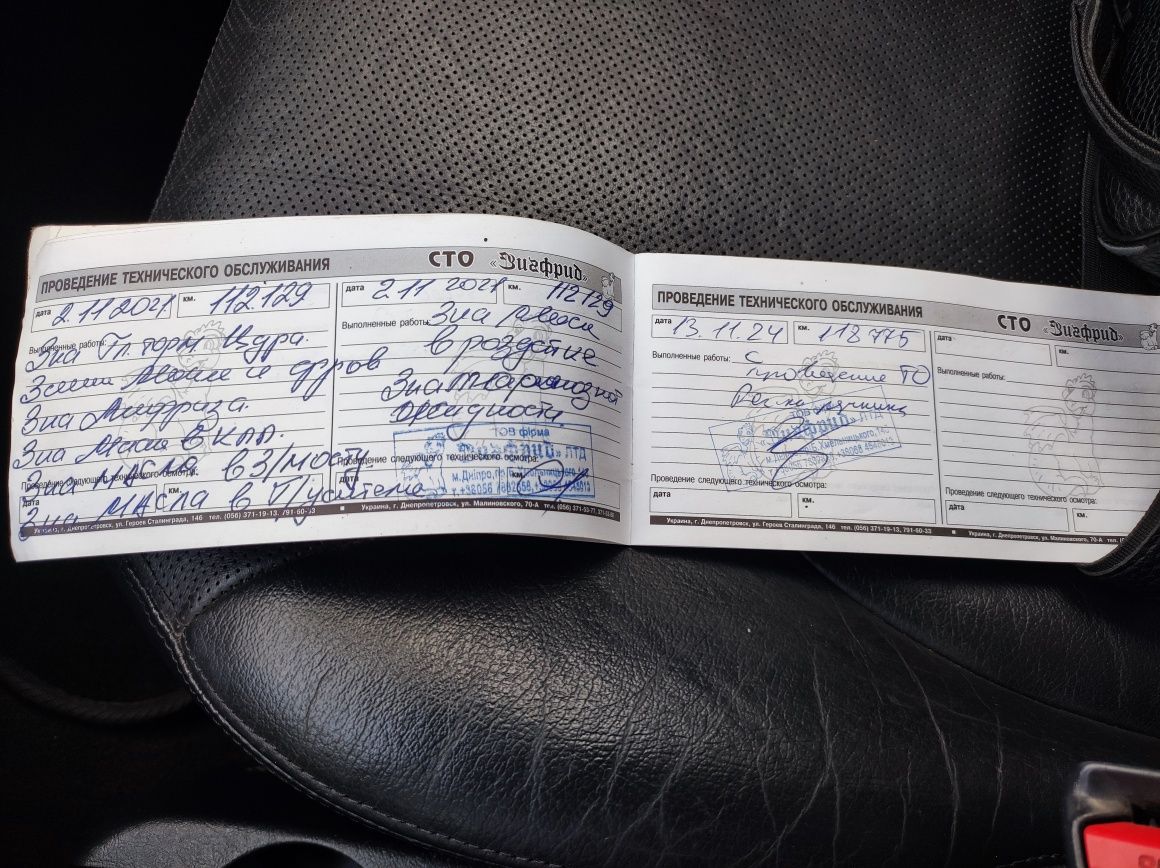 ПРОВЕДЕНИЕ ТЕХНИЧЕСКОГО ОБСЛУЖИВАНИЯ
СТО «Зигфрид»
дата 2.11 2021 км. 112.129
Выполненные работы:
Зна Гл. торм Цдра.
масла и
Зна Антфриза.
Зна Масла в КПП.
Зна МАСЛА в З/мост.
Проведение следующего технического осмотра:
дата км.
Зна МАСЛА в
Украина, г. Днепропетровск, ул. Героев Сталинграда, 146 тел. (056) 371-19-13, 791-60-33
дата 2.11 2021 км. 112129
Выполненные работы: Зна масла
в роздатке
Зна тормозной
жидкости
ТОВ фірма
«Зигфрид» ЛТД
м.Дніпро,
Проведение следующего технического осмотра:
дата км.
Украина, г. Днепропетровск, ул. Малиновского, 70-А тел. (056) 371-53-77,
ПРОВЕДЕНИЕ ТЕХНИЧЕСКОГО ОБСЛУЖИВАНИЯ
СТО «Зигфрид»
дата 13.11.24 км. 118 775
Выполненные работы: С
проведение ТО
ТОВ
«Зигфрид» ЛТД
Проведение следующего технического осмотра:
дата км.
Украина, г. Днепропетровск, ул. Героев Сталинграда, 146 тел. (056) 371-19-13, 791-60-33
дата км.
Выполненные работы:
Проведение следующего технического осмотра:
дата км.
Украина, г. Днепропетровск, ул. Малиновского, 70-А тел.